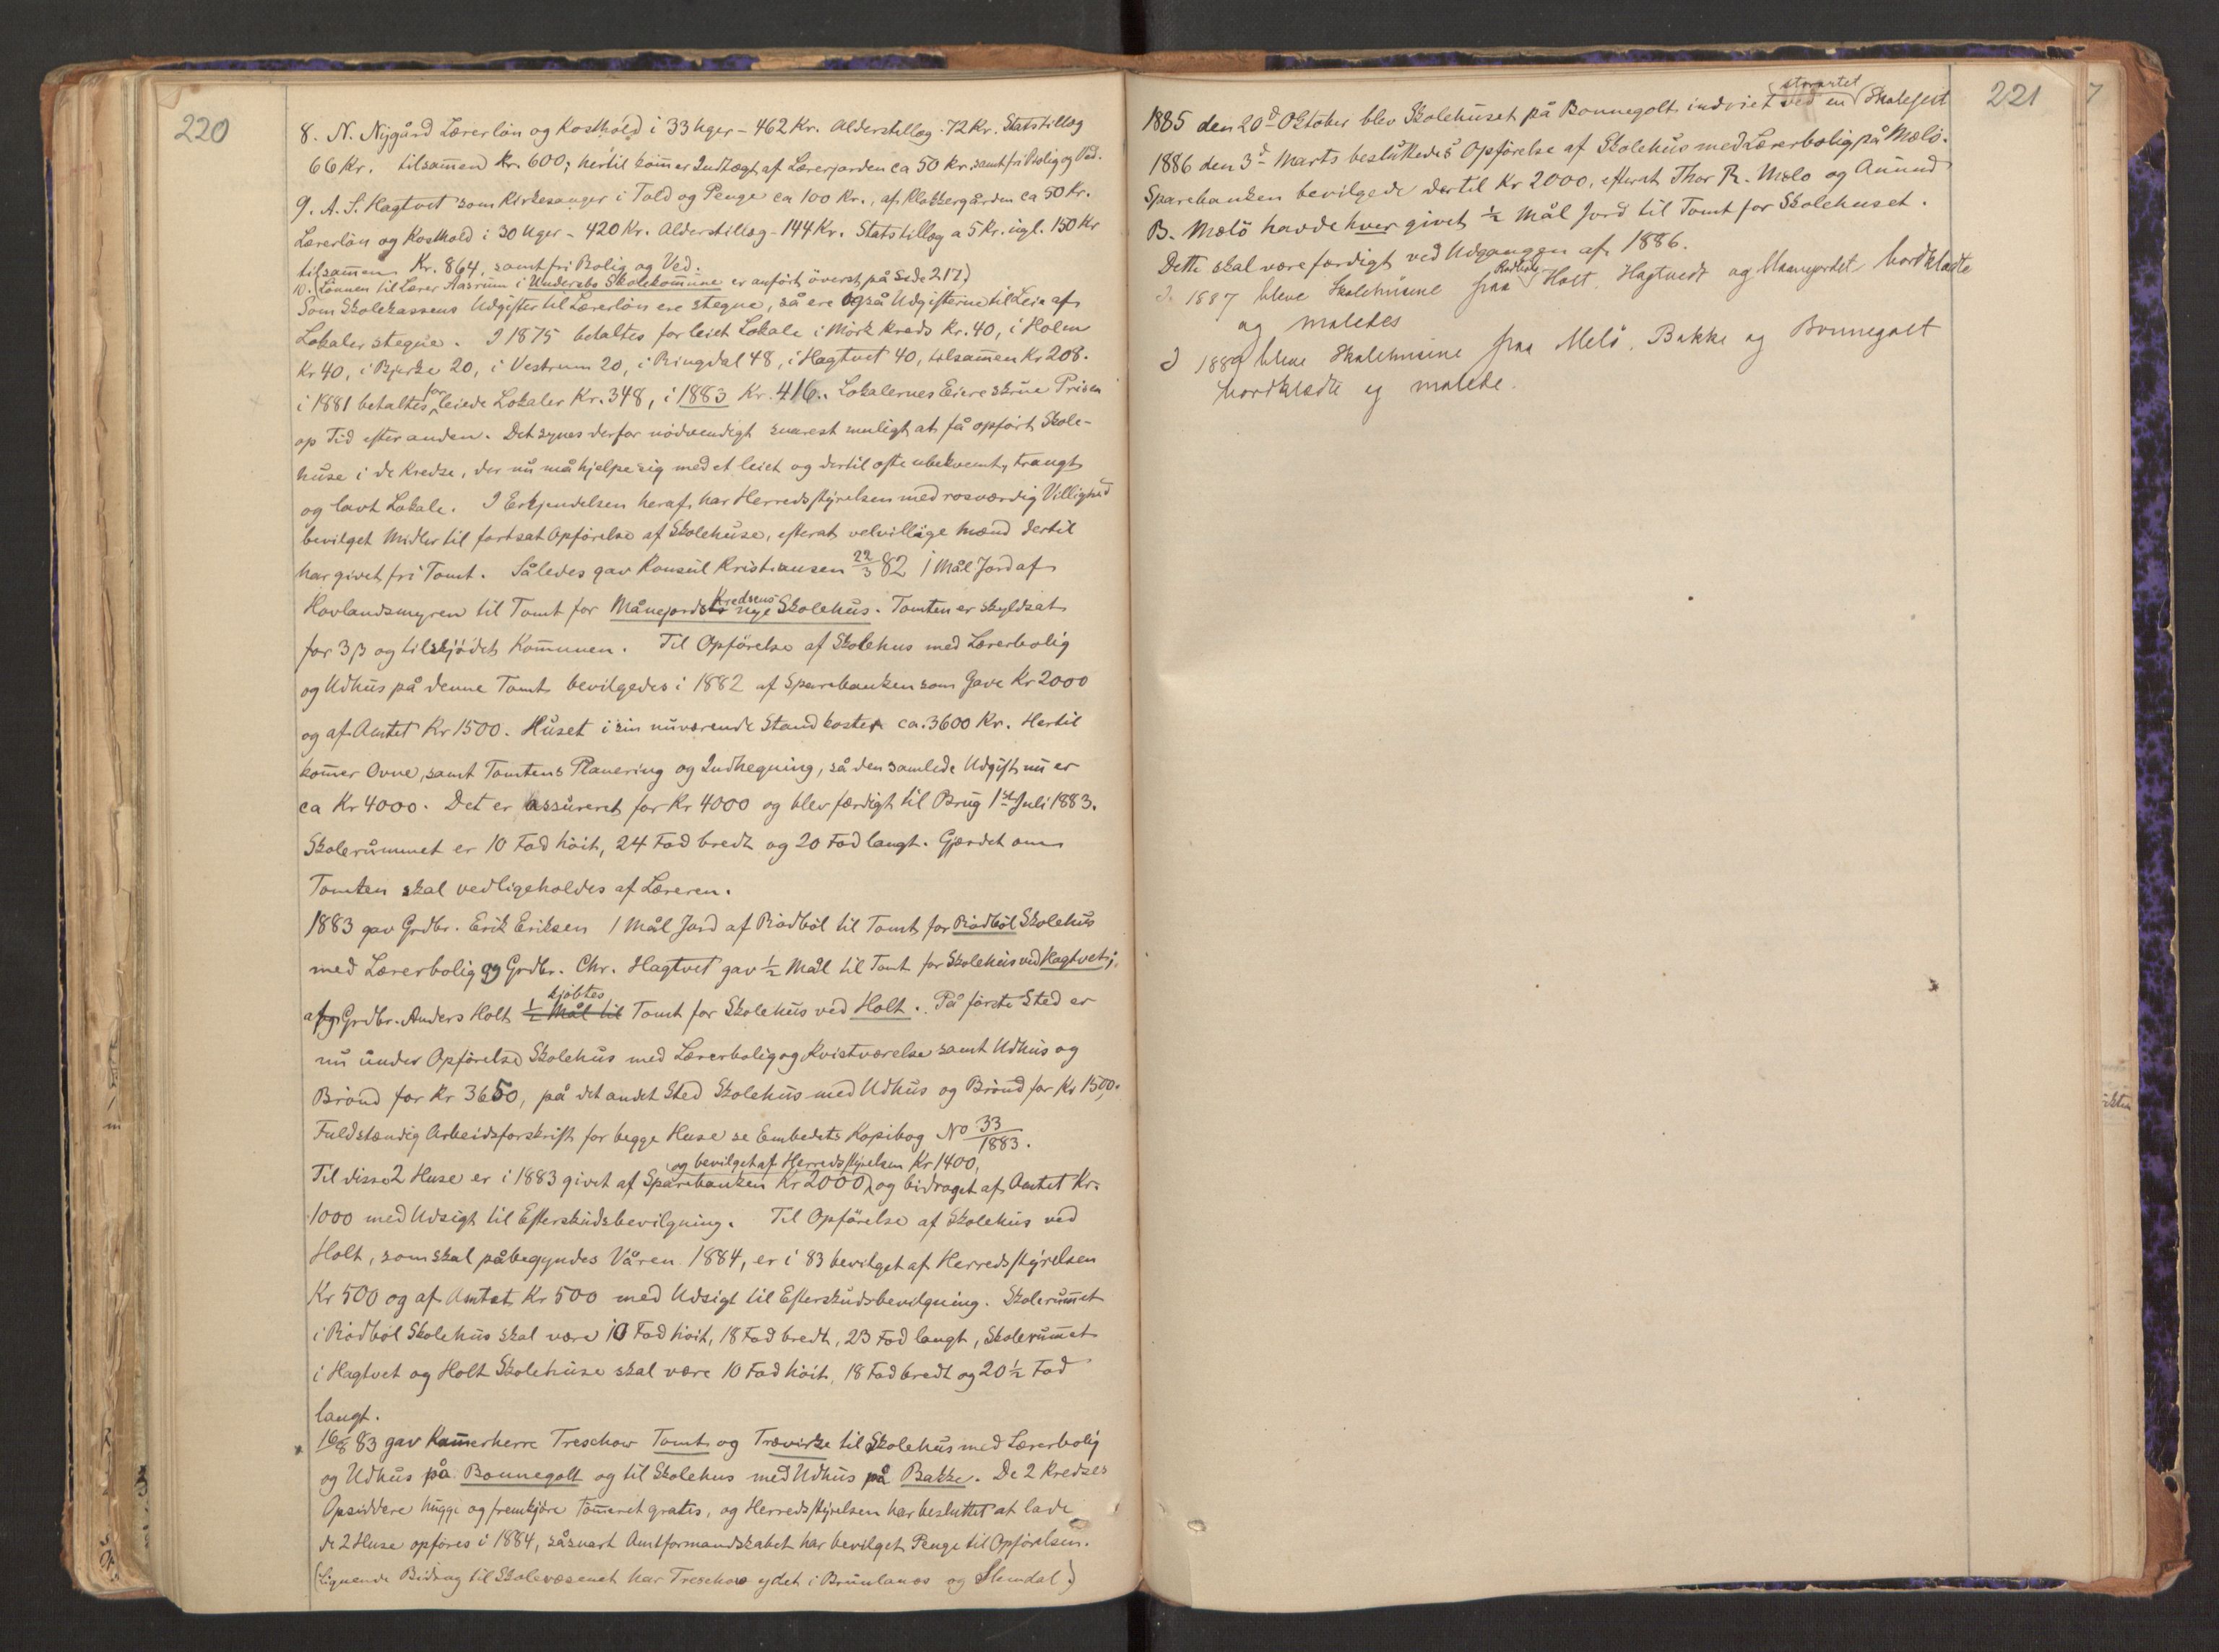 220
8. N. Nygård Lærerløn og Kosthold i 33 Uger - 462 Kr. Alderstillæg 72 Kr. Statstillæg
66 Kr. tilsam̄en Kr. 600; hertil kom̄er Indtægt af Lærerjorden ca 50 Kr. samt fri Bolig og Ved.
9. A. S. Hagtvet som Kirkesanger i Told og Penge ca 100 Kr., af Klokkergården ca 50 Kr.
Lærerløn og Kosthold i 30 Uger - 420 Kr. Alderstillæg - 144 Kr. Statstillæg a 5 Kr. ugl. 150 Kr
tilsam̄en Kr. 864, samt fri Bolig og Ved.
10. (Lønnen til Lærer Aasrum i Undersbo Skolekom̄une er anført øverst på Side 217)
Som Skolekassens Udgifter til Lærerløn ere stegne, så ere også Udgifterne til Leie af
Lokaler stegne. I 1875 betaltes for leiet Lokale i Mørk Kreds Kr. 40, i Holm
Kr 40, i Bjerke 20, i Vestrum 20, i Ringdal 48, i Hagtvet 40, tilsam̄en Kr 208.
i 1881 betaltes for leiede Lokaler Kr. 348, i 1883 Kr. 416. Lokalernes Eiere skrue Prisen
op Tid efter anden. Det synes derfor nödvendigt snarest muligt at få opført Skole-
huse i de Kredse, der nu må hjelpe sig med et leiet og dertil ofte ubekvemt, trangt
og lavt Lokale. I Erkjendelsen heraf har Herredsstyrelsen med rosværdig Villighed
bevilget Midler til fortsat Opförelse af Skolehuse, efterat velvillige Mænd dertil
har givet fri Tomt. Således gav Konsul Kristiansen 22/3 82 1 Mål Jord af
Hovlandsmyren til Tomt for Månejordets Kredsens nye Skolehus. Tomten er skyldsat
for 3 β og tilskjödet Kom̄unen. Til Opförelse af Skolehus med Lærerbolig
og Udhus på denne Tomt bevilgedes i 1882 af Sparebanken som Gave Kr 2000
og af Amtet Kr 1500. Huset i sin nuværende Stand koster ca. 3600 Kr. Hertil
kom̄er Ovne, samt Tomtens Planering og Indhegning, så den samlede Udgift nu er
ca Kr 4000. Det er assureret for Kr 4000 og blev færdigt til Brug 1st Juli 1883.
Skolerummet er 10 Fod höit, 24 Fod bredt og 20 Fod langt. Gjærdet om
Tomten skal vedligeholdes af Læreren.
1883 gav Grdbr. Erik Eriksen 1 Mål Jord af Rödböl til Tomt for Rödböl Skolehus
med Lærerbolig og Grdbr. Chr. Hagtvet gav ½ Mål til Tomt for Skolehus ved Hagtvet;
af Grdbr. Anders Holt kjöbtes ½ Mål til Tomt for Skolehus ved Holt. På förste Sted er
nu under Opförelse Skolehus med Lærerbolig og Kvistværelse samt Udhus og
Brönd for Kr 3650, på det andet Sted Skolehus med Udhus og Brönd for Kr 1500.
Fuldstændig Arbeidsforskrift for begge Huse se Embedets Kopibog No 33/1883.
og bevilget af Herredsstyrelsen Kr 1400,
Til disse 2 Huse er i 1883 givet af Sparebanken Kr 2000, og bidraget af Amtet Kr.
1000 med Udsigt til Efterskudsbevilgning. Til Opförelse af Skolehus ved
Holt, som skal påbegyndes Våren 1884, er i 83 bevilget af Herredsstyrelsen
Kr 500 og af Amtet Kr 500 med Udsigt til Efterskudsbevilgning. Skolerum̄et
i Rödböl Skolehus skal være 10 Fod höit, 18 Fod bredt, 23 Fod langt, Skolerum̄et
i Hagtvet og Holt Skolehuse skal være 10 Fod höit, 18 Fod bredt og 20 ½ Fod
langt.
16/8 83 gav Kam̄erherre Treschow Tomt og Trævirke til Skolehus med Lærerbolig
og Udhus på Bonnegolt og til Skolehus med Udhus på Bakke. De 2 Kredses
Opsiddere hugge og fremkjöre Töm̄eret gratis, og Herredsstyrelsen har besluttet at lade
de 2 Huse opföres i 1884, såsnart Amtformandskabet har bevilget Penge til Opförelsen.
(Lignende Bidrag til Skolevæsenet har Treschow ydet i Brunlanæs og Slemdal)
221
storartet
1885 den 20d Oktober blev Skolehuset på Bonnegolt indviet ved en Skolefest
1886 den 3d Marts besluttedes Opförelse af Skolehus med Lærerbolig på Melö.
Sparebanken bevilgede dertil Kr 2000, efterat Thor R. Melö og Amund
B. Melö havde hver givet ½ Mål Jord til Tomt for Skolehuset.
Dette skal være færdigt ved Udgangen af 1886.
I 1887 bleve Skolehusene paa Rødbøl, Holt, Hagtvedt og Maanejordet bordklædte
og maledes
I 1889 bleve Skolehusene paa Melö, Bakke og Bonnegolt
bordklædte og malede.